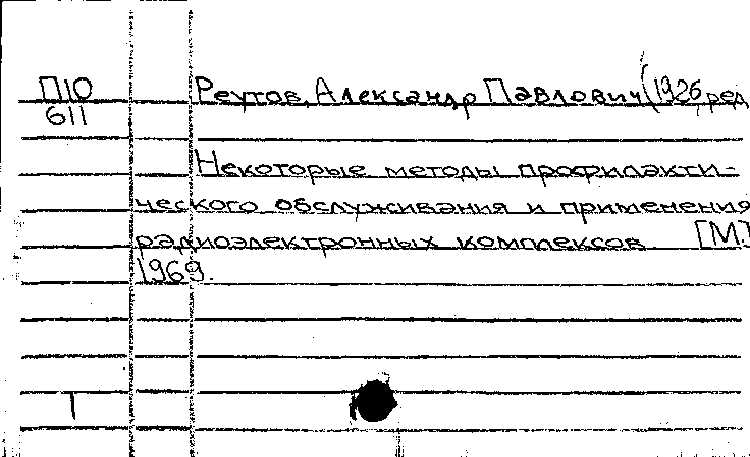 П10 Реутов, Александр Павлович (1926, ред
611
Некоторые методы профилакти-
ческого обслуживания и применения
радиоэлектронных комплексов. [М.]
1969.
1